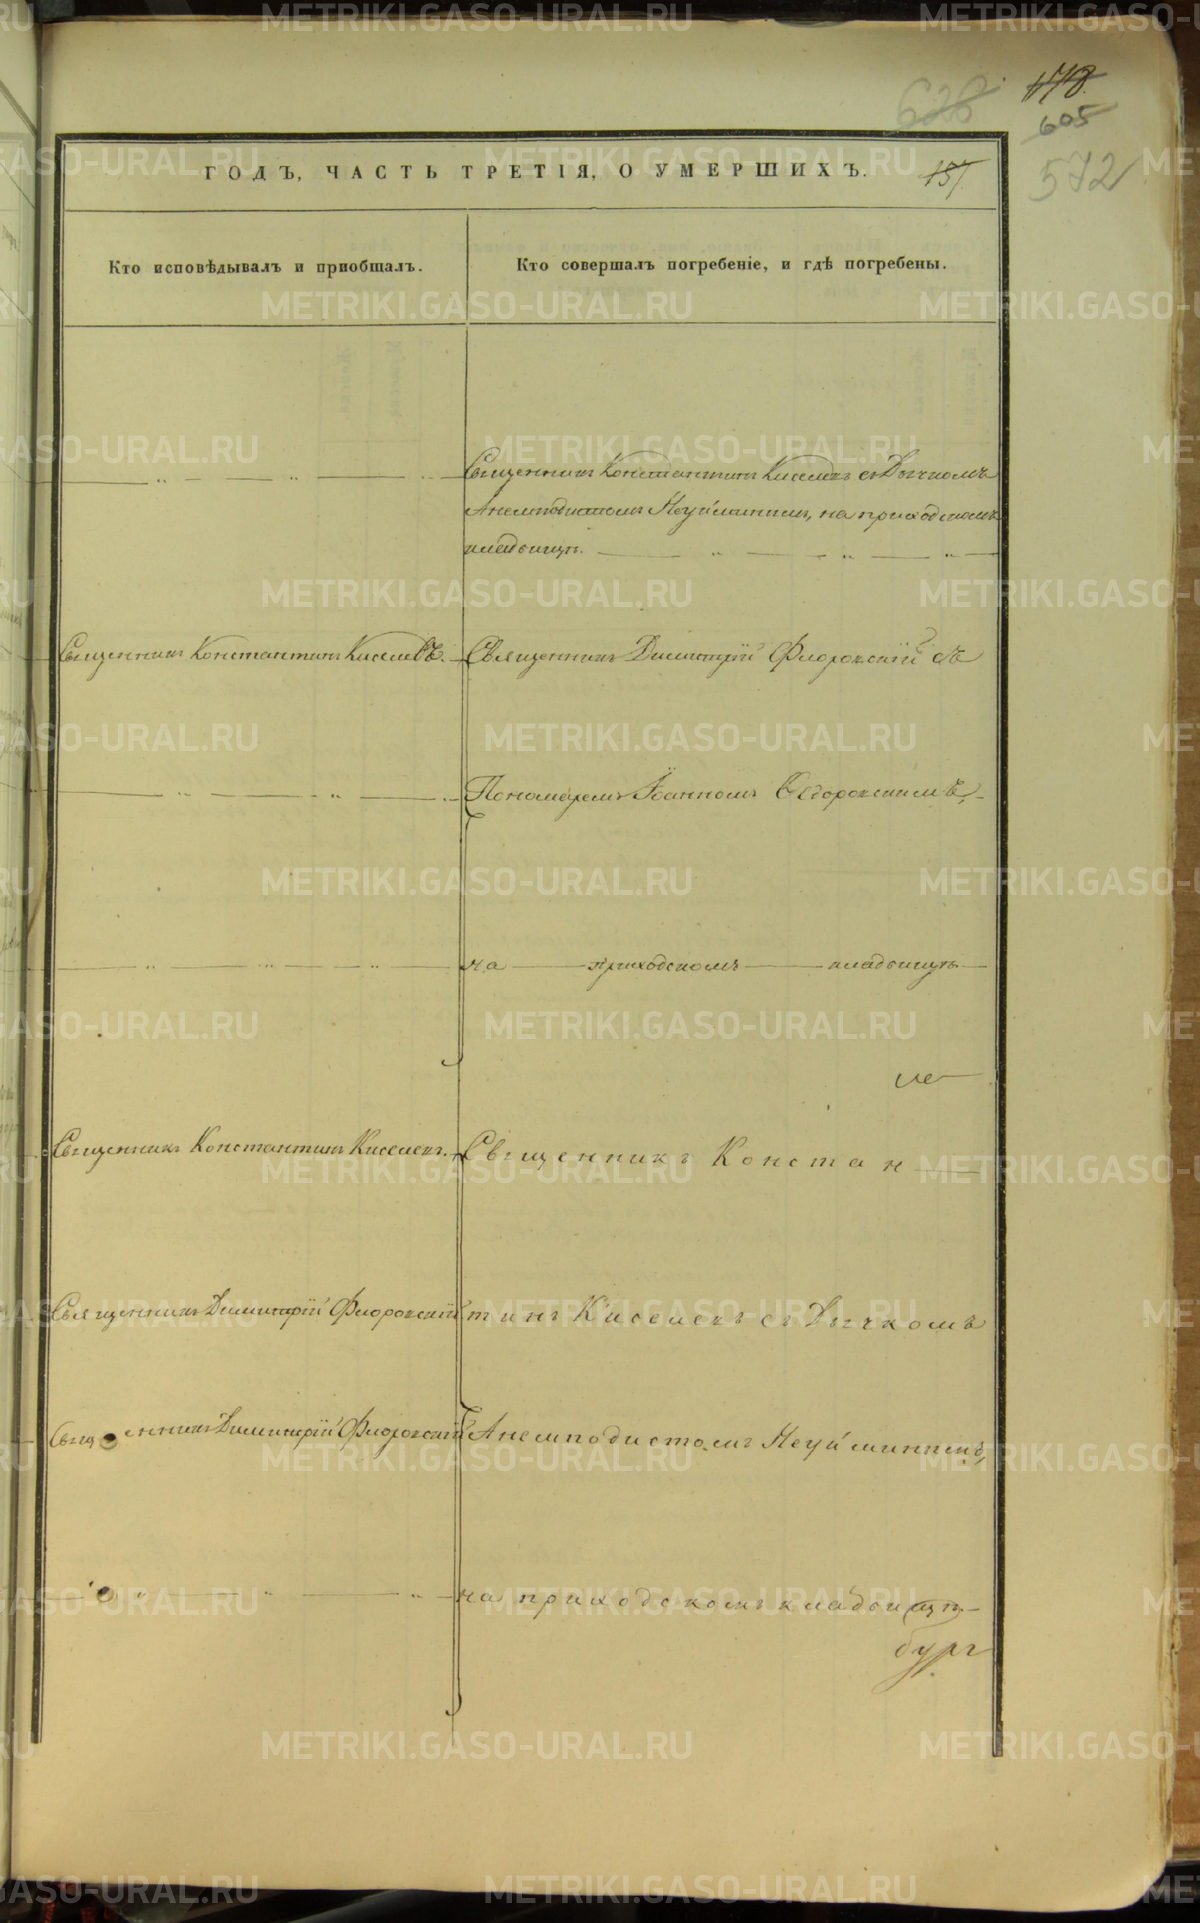 628
178
605
572
ГОДЪ, ЧАСТЬ ТРЕТІЯ, О УМЕРШИХЪ.
157
Кто исповѣдывалъ и приобщалъ.
Кто совершалъ погребеніе, и гдѣ погребены.
Священникъ Константинъ Киселевъ съ Дьячкомъ
Анемподистомъ Неуйминымъ, на приходскомъ
кладбищѣ.
Священникъ Константинъ Киселевъ.
Священникъ Димитрій Флоровскій съ
Пономаремъ Іоанномъ Сѣдоровскимъ,
на приходскомъ кладбищѣ
Священникъ Константинъ Киселевъ.
Священникъ Констан
Священникъ Димитрій Флоровскій
тинъ Киселевъ съ Дьячкомъ
Священникъ Димитрій Флоровскій
Анемподистомъ Неуйминымъ,
на приходскомъ кладбищѣ
бург
METRIKI.GASO-URAL.RU